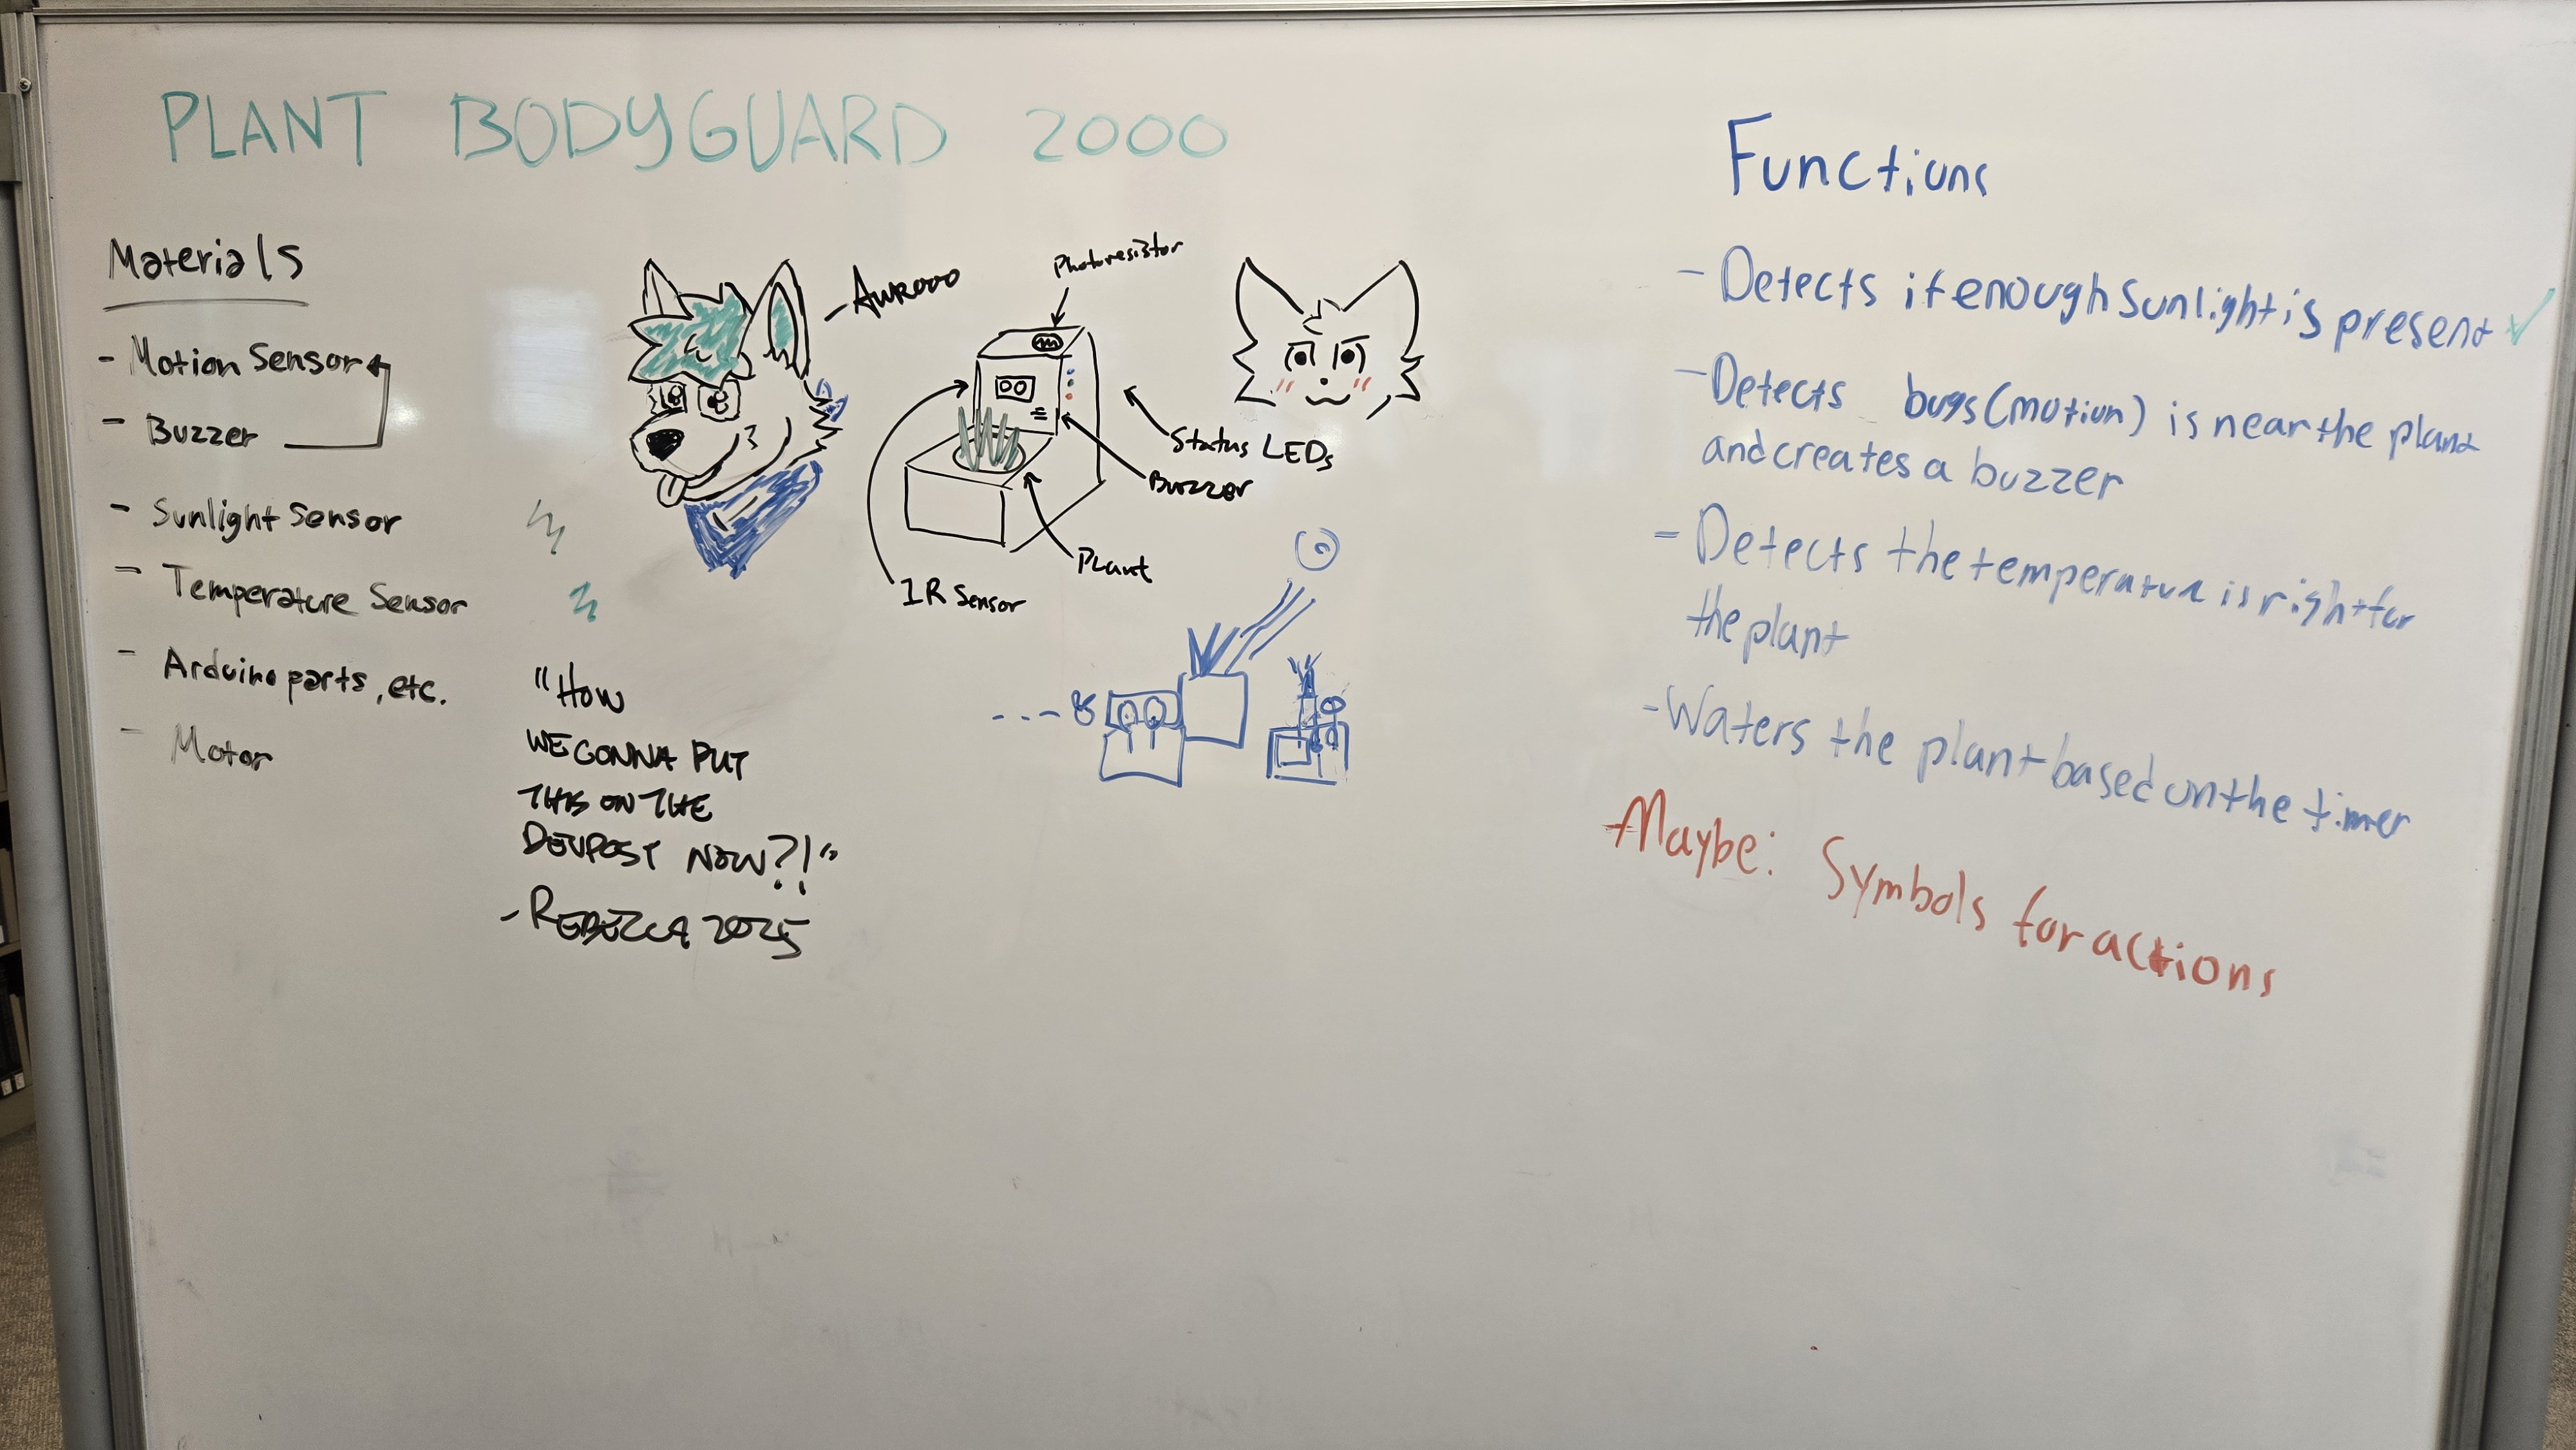 PLANT BODYGUARD 2000
Materials
- Motion Sensor
- Buzzer
- Sunlight Sensor
- Temperature Sensor
- Arduino parts, etc.
- Motor
- AWROOO
Photoresistor
Status LEDs
Buzzer
Plant
IR Sensor
"HOW
WE GONNA PUT
THIS ON THE
DEVPOST NOW?!"
- REBECCA 2025
Functions
- Detects if enough sunlight is present ✓
- Detects bugs (motion) is near the plant
and creates a buzzer
- Detects the temperature is right for
the plant
- Waters the plant based on the timer
Maybe: Symbols for actions